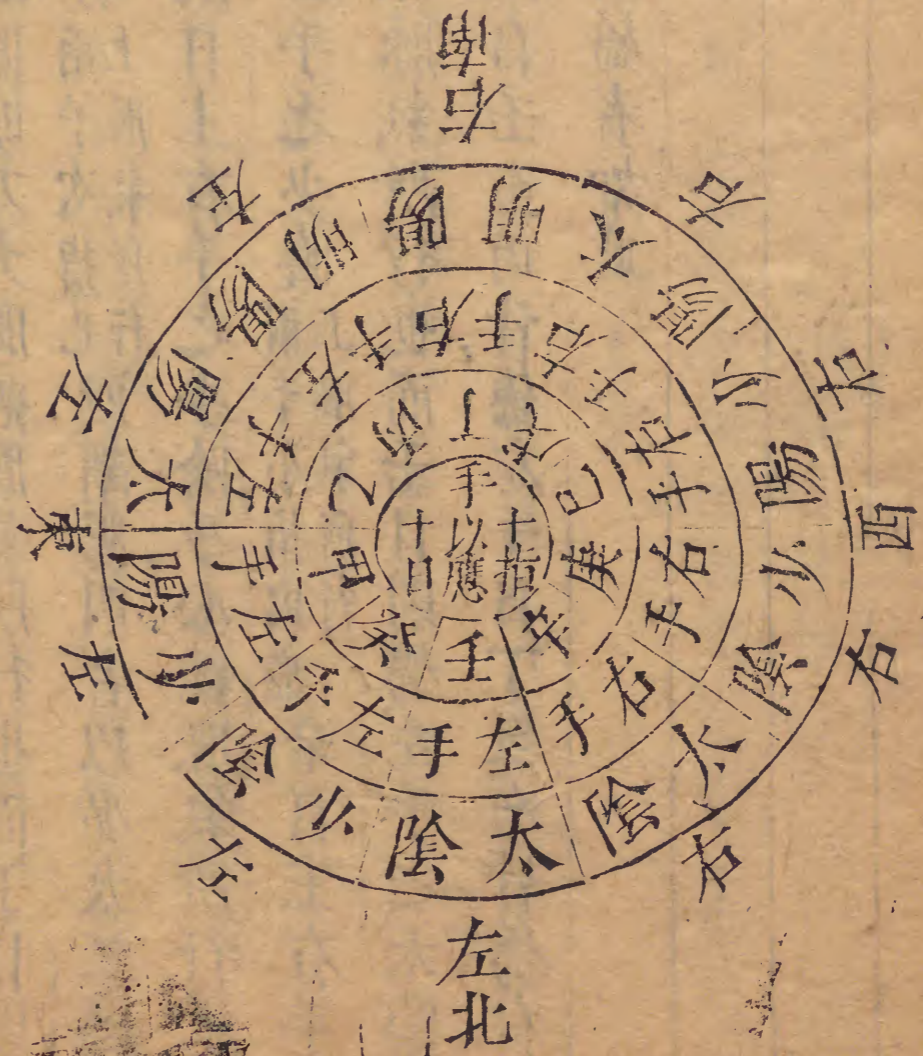 手
十指
以應
十日
甲
乙
丙
丁
戊
己
庚
辛
壬
癸
左手
左手
左手
右手
右手
右手
右手
右手
左手
左手
少陽
太陽
陽明
陽明
太陽
少陽
少陰
太陰
太陰
少陰
南
右
右
右
西
右
右
左
北
左
左
東
左
左